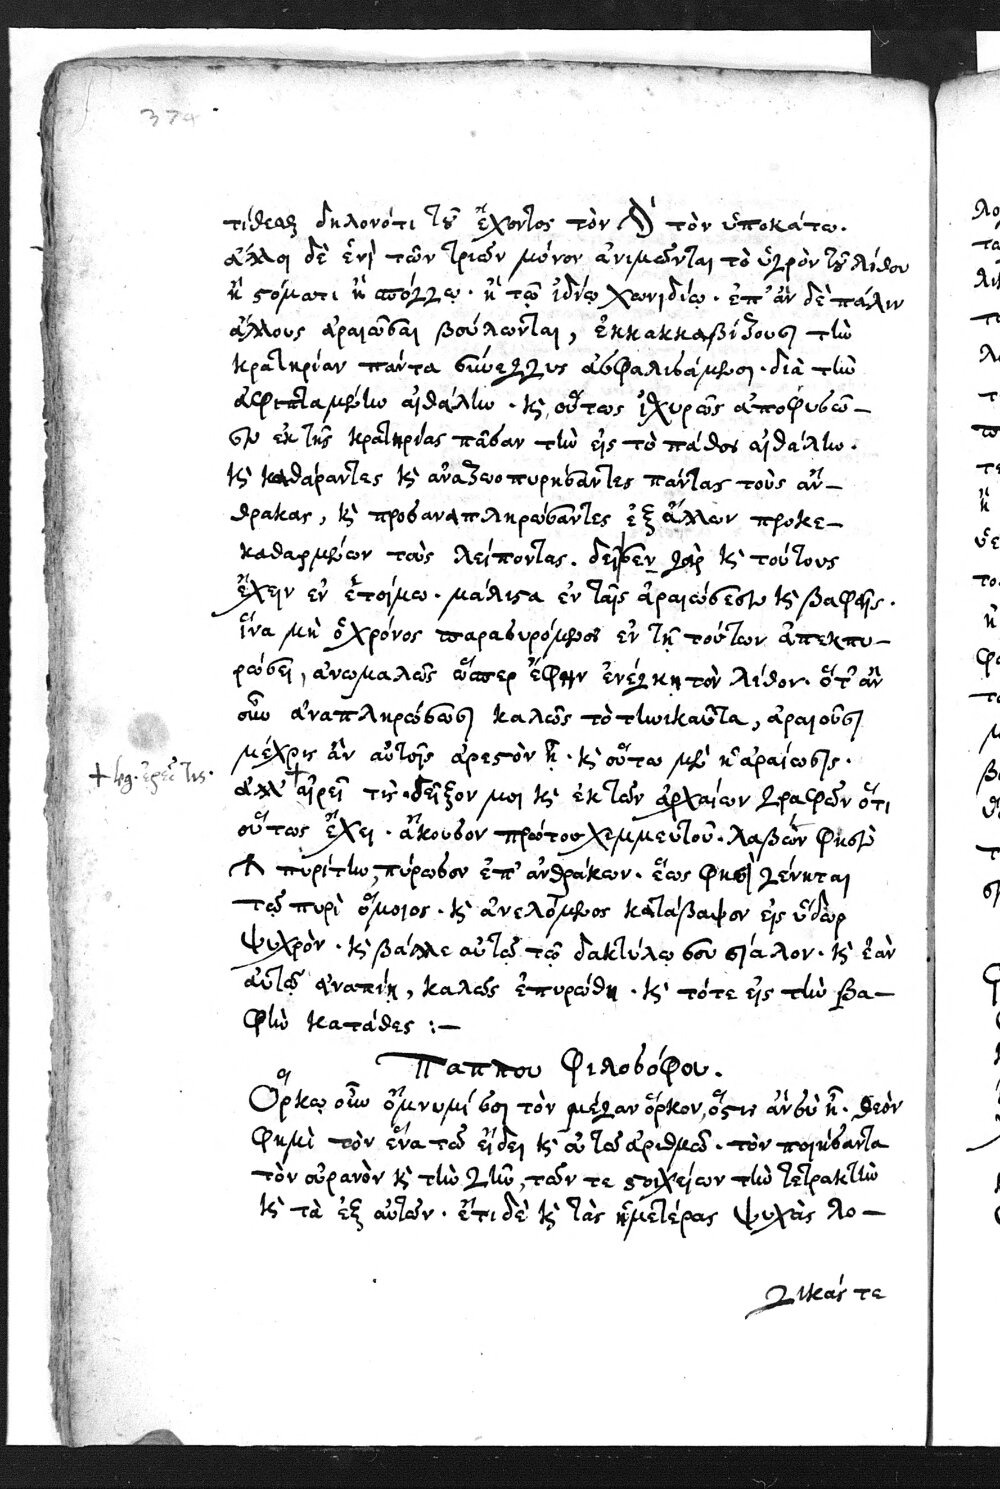 374
τίθεται δηλονότι τοῦ ἔχοντος τὸν τὸν ὑποκάτω.
ἄλλοι δὲ ἑνὶ τῶν τριῶν μόνον ἀνιμῶνται τὸ ὑγρὸν τοῦ λίθου
ἢ στόματι ἢ σπόγγῳ. ἢ τῷ ἰδνῷ χωνιδίῳ. ἐπ' ἂν δὲ πάλιν
ἄλλους ἀραιῶσαι βούλωνται, ἐκκακκαβίζουσι τὴν
κρατηρίαν πάντα συνεγγυς ἀσφαλισάμενοι. διὰ τὴν
ἀφισταμένην αἰθάλην. καὶ οὕτως ἰσχυρῶς ἀποφυσῶ-
σιν ἐκ τῆς κρατηρίας πᾶσαν τὴν εἰς τὸ πάθος αἰθάλην.
καὶ καθάραντες καὶ ἀναζωοπυρήσαντες πάντας τοὺς ἄν-
θρακας, καὶ προσαναπληρώσαντες ἐξ ἄλλων προκε-
καθαρμένων τοὺς λείποντας. γὰρ καὶ τούτους
ἔχειν ἐν ἑτοίμῳ. μάλιστα ἐν ταῖς ἀραιώσεσιν καὶ βαφαῖς.
ἵνα μὴ ὁ χρόνος παρασυρόμενος ἐν τῇ τούτων ἀπεκπυ-
ρώσει, ἀνωμαλῶς ὥσπερ ἔφην ἐνέγκῃ τὸν λίθον. ὅτ' ἂν
οὖν ἀναπληρώσωσι καλῶς τὸ τηνικαῦτα, ἀραιοῦσι
μέχρις ἂν αὐτοῖς ἀρεστὸν ᾖ. καὶ οὕτω μὲν ἡ ἀραίωσις.
+ ἐρεῖ τις.
ἀλλ' + αἱρεῖ τις. δεῖξον μοι καὶ ἐκ τῶν ἀρχαίων γραφῶν ὅτι
οὕτως ἔχει. ἄκουσον πρῶτον χεμμευτοῦ. λαβὼν φησὶν
πυρίτην, πύρωσον ἐπ' ἀνθράκων. ἕως φησὶ γένηται
τῷ πυρὶ ὅμοιος. καὶ ἀνελόμενος κατάβαψον εἰς ὕδωρ
ψυχρὸν. καὶ βάλλε αὐτῷ τῷ δακτύλῳ σου σίαλον. καὶ ἐὰν
αὐτῷ ἀναπίῃ, καλῶς ἐπυρώθη. καὶ τότε εἰς τὴν βα-
φὴν κατάθες :-
Παππου Φιλοσόφου.
Ὅρκῳ οὖν ὄμνυμί σοι τὸν μέγαν ὅρκον, ὅστις ἂν σὺ ᾖ. θεὸν
φημὶ τὸν ἕνα τῷ εἴδει καὶ οὐ τῷ ἀριθμῷ. τὸν ποιήσαντα
τὸν οὐρανὸν καὶ τὴν γῆν, τῶν τε στοιχείων τὴν τετρακτὺν
καὶ τὰ ἐξ αὐτῶν. ἔτι δὲ καὶ τὰς ἡμετέρας ψυχὰς λο-
γικάς τε